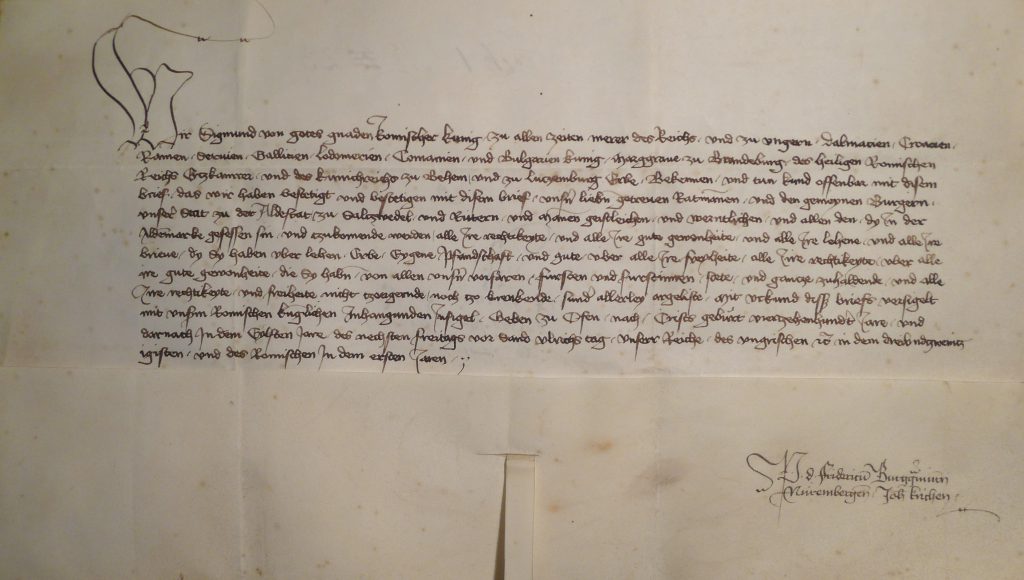 Wir Sigmund von gotes gnaden Romischer kunig · zu allen zeiten merer des Reichs · und zu ungern · Dalmacien · Croacien ·
Ramen · Seruien · Gallitien · lodomerien · Comanien · und Bulgarien kunig · Marggraue zu Brandeburg · des heiligen Romischen
Reichs Ertzkamrer · und des kunichreichs zu Behem und zu luczemburg Erbe · Bekennen · und tun kund offenbar mit disem
brief · das wir haben bestetigt und bestetigen mit disem brief · unsn liebn getrewen Ratmannen · und den gemeynen Burgern ·
unser Stat zu der Aldestat zu Saltzwedel · und Rittern · und Mannen geistleichen · und werntlichen · und allen den · dy in der
Aldemarcke gesessen sin · und tzukomende werden · alle ire rechtikeyte · und alle Ire gute gewonheite · und alle ire lehene · und alle Ire
brieue · dy Sy haben uber lehen · Erbe · Eygene · Pfandschaft · und gute · uber alle ire freyheite · alle Ire rechtikeyte · uber alle
ire gute gewonheite · die Sy habn · von allen unsn vorfaren · fursten und furstinnen · stete · und gantze zuhaldende · und alle
Ire rechtikeyte · und freiheite nicht tzoergernde · noch tzo krenkende · sund allerley argeliste · Mit urkund diss briefs versigelt
mit unsrm Romischen kuglichen Inhangunden Insigel · Geben zu Ofen · nach · Crists geburt viertzehenhundert Jare · und
darnach · In dem Eylften Jare des nechsten freitags vor Sand Ulrichs tag · unserr Reiche · des ungrischen etc in dem dreundzweintz
igisten · und des Romischen In dem ersten Jaren ·
P d fridericu Burggrauium
Nurembergen Joh kirchen